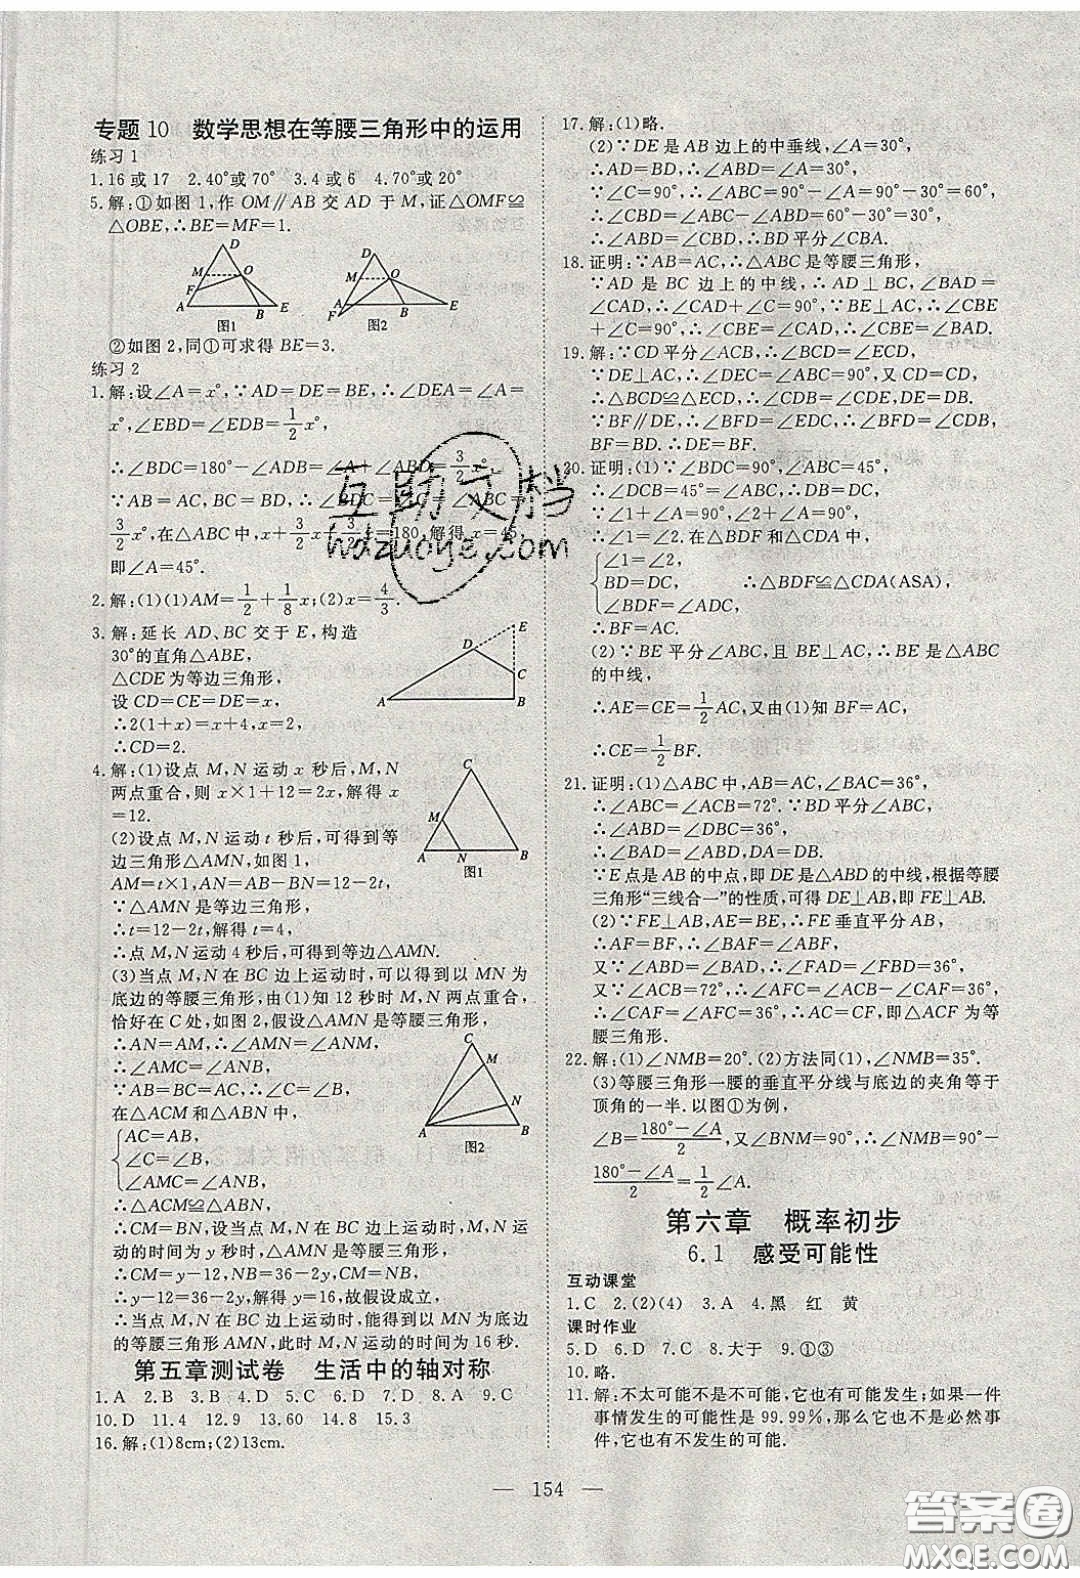 专题10 数学思想在等腰三角形中的运用
练习1
1.16或17 2.40°或70° 3.4或6 4.70°或20°
5.解:①如图1,作OM∥AB交AD于M,证△OMF≌
△OBE,∴BE=MF=1.
D
M
O
F
A
B
E
图1
D
M
O
A
F
B
E
图2
②如图2,同①可求得BE=3.
练习2
1.解:设∠A=x°,∵AD=DE=BE,∴∠DEA=∠A=
x°,∠EBD=∠EDB=1/2x°,
∴∠BDC=180°-∠ADB=∠A+∠ABD=3/2x°,
∵AB=AC,BC=BD,∴∠BDC=∠C=∠ABC=
3/2x°,在△ABC中,x+3/2x+3/2x=180,解得x=45,
即∠A=45°.
2.解:(1)(1)AM=1/2+1/8x;(2)x=4/3.
3.解:延长AD、BC交于E,构造
30°的直角△ABE,
△CDE为等边三角形,
设CD=CE=DE=x,
∴2(1+x)=x+4,x=2,
∴CD=2.
E
D
C
A
B
4.解:(1)设点M,N运动x秒后,M,N
两点重合,则x×1+12=2x,解得x
=12.
(2)设点M,N运动t秒后,可得到等
边三角形△AMN,如图1,
AM=t×1,AN=AB-BN=12-2t,
∵△AMN是等边三角形,
∴t=12-2t,解得t=4,
∴点M,N运动4秒后,可得到等边△AMN.
C
M
A
N
B
图1
(3)当点M,N在BC边上运动时,可以得到以MN为
底边的等腰三角形,由(1)知12秒时M,N两点重合,
恰好在C处,如图2,假设△AMN是等腰三角形,
∴AN=AM,∴∠AMN=∠ANM,
∴∠AMC=∠ANB,
∵AB=BC=AC,∴∠C=∠B,
在△ACM和△ABN中,
AC=AB,
∠C=∠B,
∠AMC=∠ANB,
C
M
N
A
B
图2
∴△ACM≌△ABN,
∴CM=BN,设当点M,N在BC边上运动时,M,N运
动的时间为y秒时,△AMN是等腰三角形,
∴CM=y-12,NB=36-2y,CM=NB,
∴y-12=36-2y,解得y=16,故假设成立,
∴当点M,N在BC边上运动时,能得到以MN为底边
的等腰三角形AMN,此时M,N运动的时间为16秒.
第五章测试卷 生活中的轴对称
1.A 2.B 3.B 4.C 5.C 6.B 7.D 8.A 9.C
10.D 11.4 12.9 13.60 14.8 15.3
16.解:(1)8cm;(2)13cm.
17.解:(1)略.
(2)∵DE是AB边上的中垂线,∠A=30°,
∴AD=BD,∴∠ABD=∠A=30°,
∵∠C=90°,∴∠ABC=90°-∠A=90°-30°=60°,
∴∠CBD=∠ABC-∠ABD=60°-30°=30°,
∴∠ABD=∠CBD,∴BD平分∠CBA.
18.证明:∵AB=AC,∴△ABC是等腰三角形,
∵AD是BC边上的中线,∴AD⊥BC,∠BAD=
∠CAD,∴∠CAD+∠C=90°,∵BE⊥AC,∴∠CBE
+∠C=90°,∴∠CBE=∠CAD,∴∠CBE=∠BAD.
19.解:∵CD平分∠ACB,∴∠BCD=∠ECD,
∵DE⊥AC,∴∠BDC=∠EDC=90°,又CD=CD,
∴△BCD≌△ECD,∴∠BDC=∠EDC,DE=DB.
∵BF∥DE,∴∠BFD=∠EDC,∴∠BFD=∠BDF,
BF=BD.∴DE=BF.
20.证明:(1)∵∠BDC=90°,∠ABC=45°,
∴∠DCB=45°=∠ABC,∴DB=DC,
∵∠1+∠A=90°,∠2+∠A=90°,
∴∠1=∠2.在△BDF和△CDA中,
∠1=∠2,
BD=DC,
∠BDF=∠ADC,
∴△BDF≌△CDA(ASA),
∴BF=AC.
(2)∵BE平分∠ABC,且BE⊥AC,∴BE是△ABC
的中线,
∴AE=CE=1/2AC,又由(1)知BF=AC,
∴CE=1/2BF.
21.证明:(1)△ABC中,AB=AC,∠BAC=36°,
∴∠ABC=∠ACB=72°.∵BD平分∠ABC,
∴∠ABD=∠DBC=36°,
∴∠BAD=∠ABD,DA=DB.
∵E点是AB的中点,即DE是△ABD的中线,根据等腰
三角形“三线合一”的性质,可得DE⊥AB,即FE⊥AB.
(2)∵FE⊥AB,AE=BE,∴FE垂直平分AB,
∴AF=BF,∴∠BAF=∠ABF,
又∵∠ABD=∠BAD,∴∠FAD=∠FBD=36°,
又∵∠ACB=72°,∴∠AFC=∠ACB-∠CAF=36°,
∴∠CAF=∠AFC=36°,∴AC=CF,即△ACF为等
腰三角形.
22.解:(1)∠NMB=20°.(2)方法同(1),∠NMB=35°.
(3)等腰三角形一腰的垂直平分线与底边的夹角等于
顶角的一半.以图①为例,
∠B=(180°-∠A)/2,又∠BNM=90°,∴∠NMB=90°-
(180°-∠A)/2=1/2∠A.
第六章 概率初步
6.1 感受可能性
互动课堂
1.C 2.(2)(4) 3.A 4.黑 红 黄
课时作业
5.D 6.D 7.D 8.大于 9.①③
10.略.
11.解:不太可能不是不可能,它也有可能发生;如果一件
事情发生的可能性是99.99%,那么它也不是必然事
件,它也有不发生的可能.
154
互助文档
hdzuoye.com
答案圈
MXQE.COM